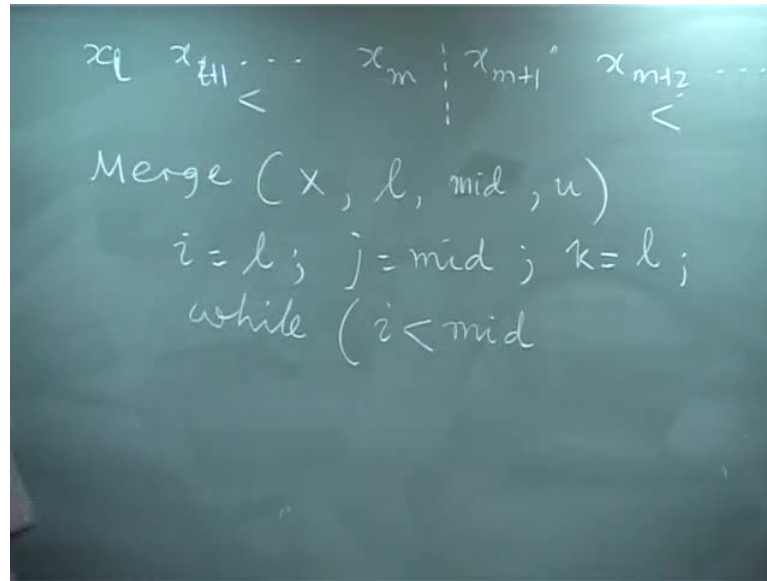 x_l x_{l+1} ... x_m ¦ x_{m+1} x_{m+2} ...
< <
Merge (x, l, mid, u)
i = l; j = mid; k = l;
while (i < mid